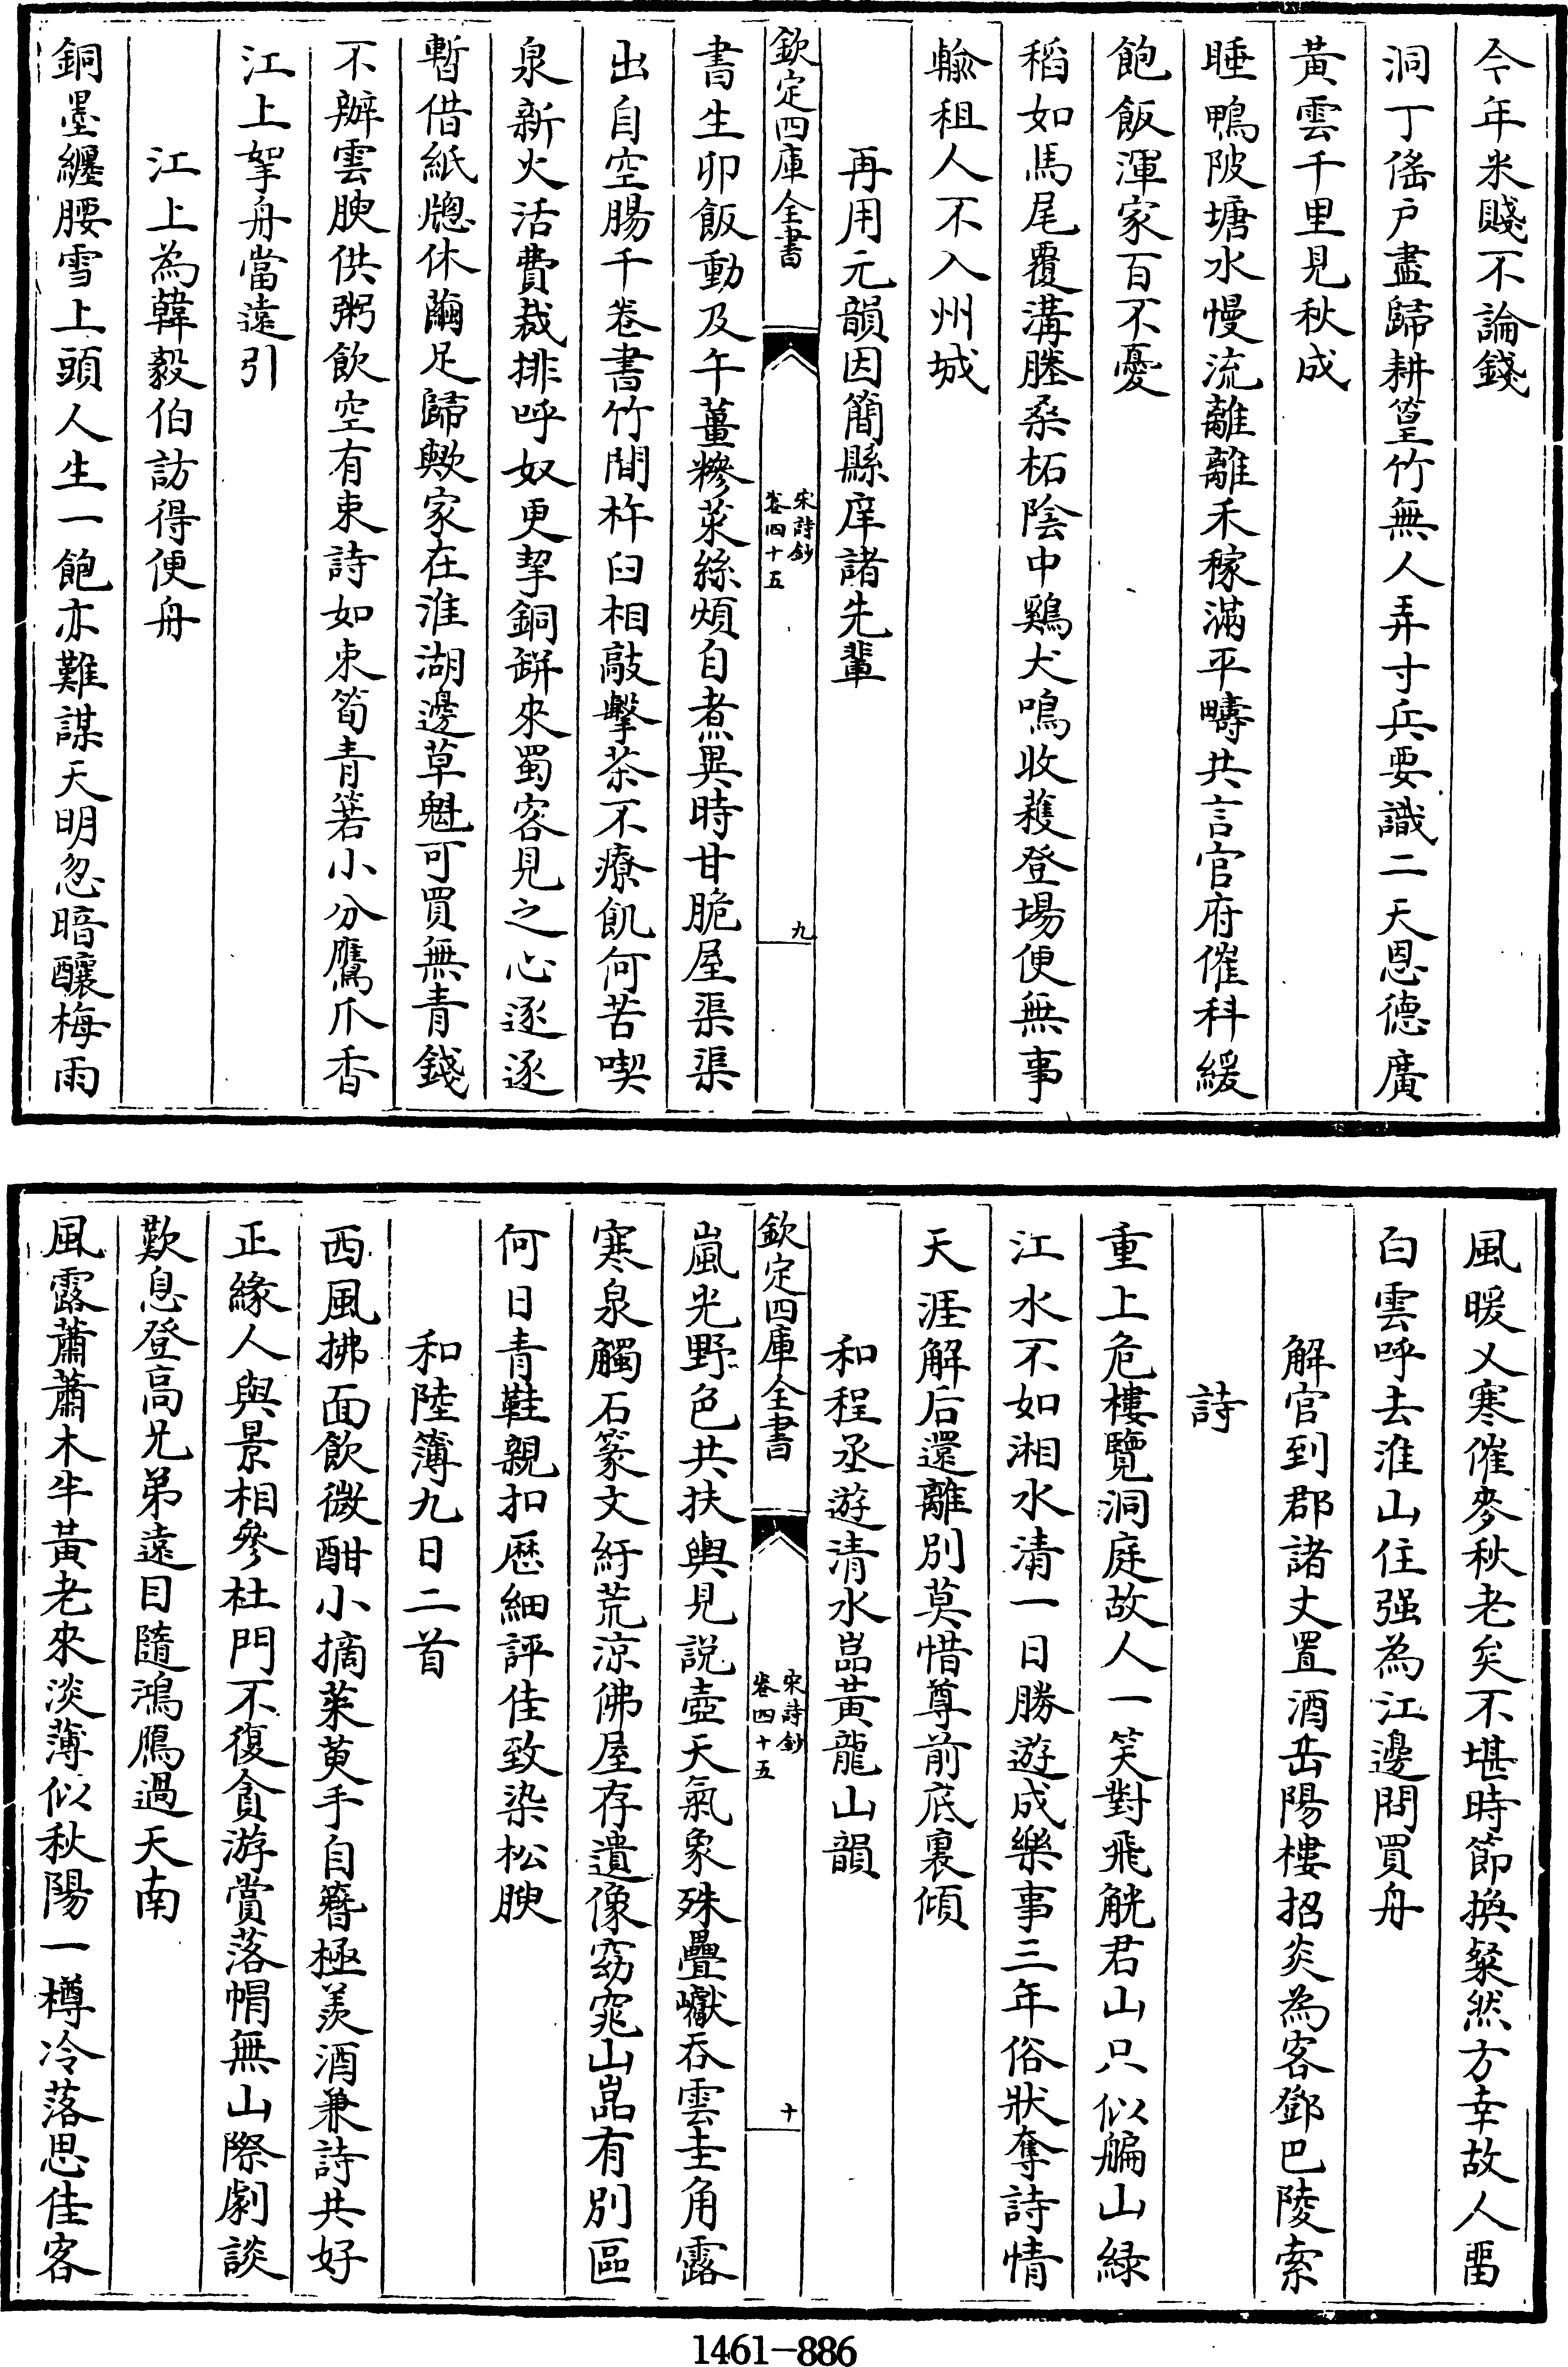 今年米賤不論錢
洞丁傜戶盡歸耕篁竹無人弄寸兵要識二天恩德廣
黃雲千里見秋成
睡鴨陂塘水慢流離離禾稼滿平疇共言官府催科緩
飽飯渾家百不憂
稻如馬尾覆溝塍桑柘陰中鷄犬鳴收穫登場便無事
輸租人不入州城
再用元韻因簡縣庠諸先輩
欽定四庫全書
宋詩鈔
卷四十五
九
書生卯飯動及午薑糝菜絲煩自煮異時甘脆屋渠渠
出自空腸千卷書竹間杵臼相敲擊茶不療飢何苦喫
泉新火活費裁排呼奴更挈銅缾來蜀客見之心逐逐
暫借紙牕休繭足歸歟家在淮湖邊草魁可買無青錢
不辦雲腴供粥飲空有束詩如束筍青箬小分鷹爪香
江上挐舟當遠引
江上為韓毅伯訪得便舟
銅墨纒腰雪上頭人生一飽亦難謀天明忽暗釀梅雨
風暖乂寒催麥秋老矣不堪時節換粲然方幸故人畱
白雲呼去淮山住强為江邊問買舟
解官到郡諸丈置酒岳陽樓招炎為客鄧巴陵索
詩
重上危樓覽洞庭故人一笑對飛觥君山只似艑山緑
江水不如湘水清一日勝遊成樂事三年俗狀奪詩情
天涯解后還離別莫惜尊前底裏傾
和程丞遊清水嵓黃龍山韻
欽定四庫全書
宋詩鈔
卷四十五
十
嵐光野色共扶輿見説壺天氣象殊疊巘吞雲圭角露
寒泉觸石篆文紆荒涼佛屋存遺像窈窕山嵓有別區
何日青鞋親扣歴細評佳致染松腴
和陸簿九日二首
西風拂面飲微酣小摘茱萸手自簪極羨酒兼詩共好
正緣人與景相參杜門不復貪游賞落帽無山際劇談
歎息登高兄弟遠目隨鴻鴈過天南
風露蕭蕭木半黃老來淡薄似秋陽一樽冷落思佳客
1461-886